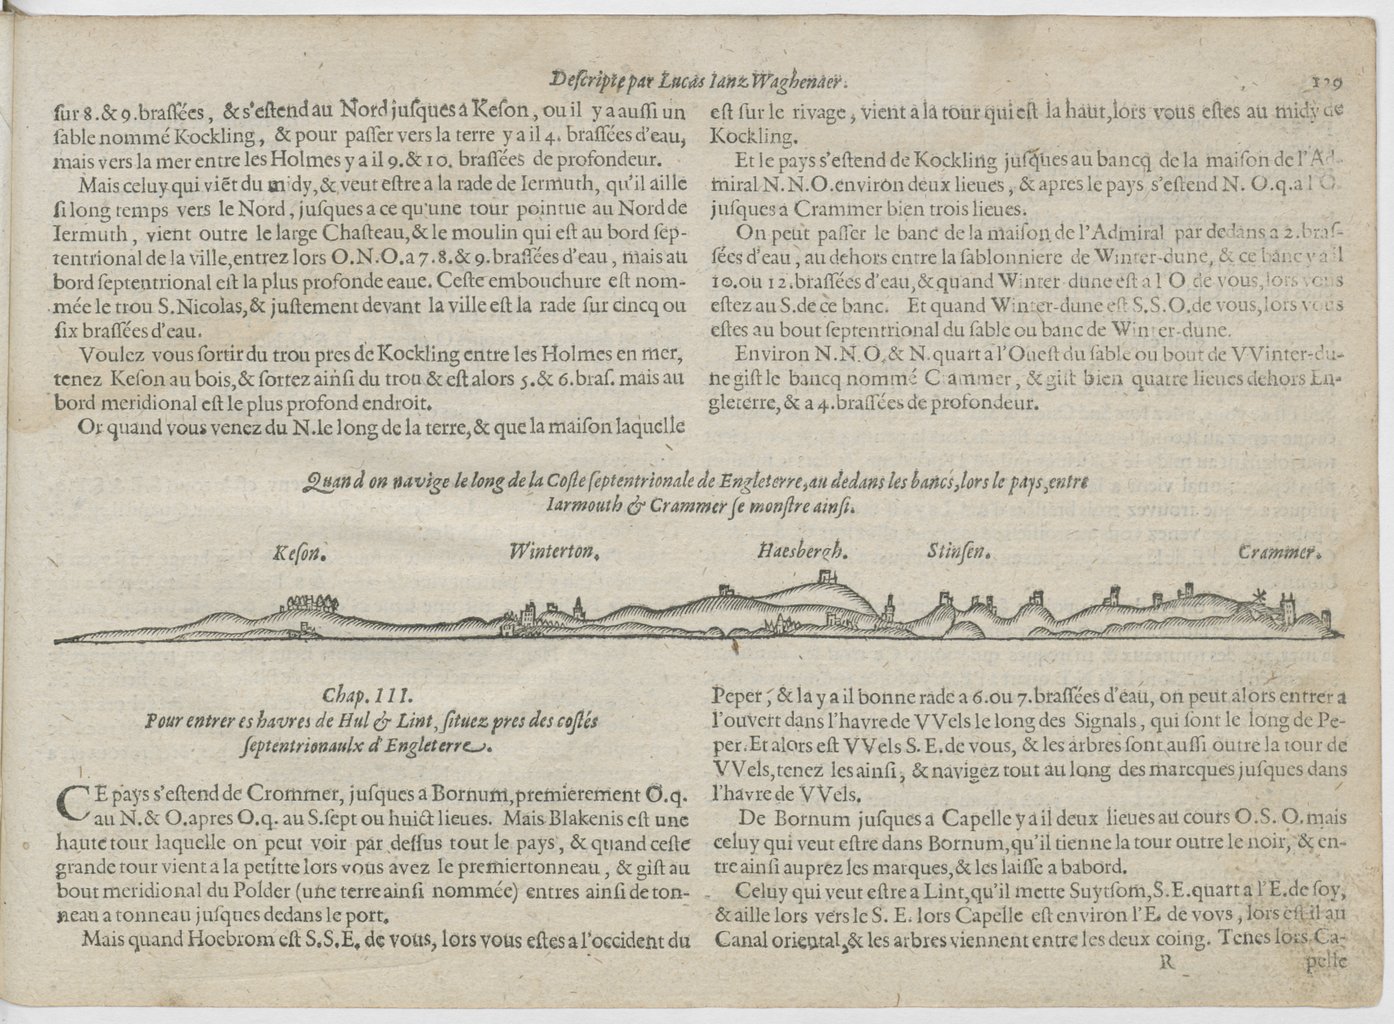 Descripte par Lucas Ianz Waghenaer. 129
sur 8. & 9. brassées, & s'estend au Nord jusques a Keson, ou il y a aussi un
sable nommé Kockling, & pour passer vers la terre y a il 4. brassées d'eau,
mais vers la mer entre les Holmes y a il 9. & 10. brassées de profondeur.
Mais celuy qui viẽt du midy, & veut estre a la rade de Iermuth, qu'il aille
si long temps vers le Nord, jusques a ce qu'une tour pointue au Nord de
Iermuth, vient outre le large Chasteau, & le moulin qui est au bord sep-
tentrional de la ville, entrez lors O.N.O. a 7. 8. & 9. brassées d'eau, mais au
bord septentrional est la plus profonde eaue. Ceste embouchure est nom-
mée le trou S. Nicolas, & justement devant la ville est la rade sur cincq ou
six brassées d'eau.
Voulez vous sortir du trou pres de Kockling entre les Holmes en mer,
tenez Keson au bois, & sortez ainsi du trou & est alors 5. & 6. bras. mais au
bord meridional est le plus profond endroit.
Or quand vous venez du N. le long de la terre, & que la maison laquelle
est sur le rivage, vient a la tour qui est la haut, lors vous estes au midy de
Kockling.
Et le pays s'estend de Kockling jusques au bancq de la maison de l'Ad-
miral N. N. O. environ deux lieues, & apres le pays s'estend N. O. q. a l'O.
jusques a Crammer bien trois lieues.
On peut passer le banc de la maison de l'Admiral par dedans a 2. bras-
sées d'eau, au dehors entre la sablonniere de Winter-dune, & ce banc y a il
10. ou 12. brassées d'eau, & quand Winter-dune est a l'O de vous, lors vous
estez au S. de ce banc. Et quand Winter-dune est S.S.O. de vous, lors vous
estes au bout septentrional du sable ou banc de Winter-dune.
Environ N.N.O. & N. quart a l'Ouest du sable ou bout de VVinter-du-
ne gist le bancq nommé Crammer, & gist bien quatre lieues dehors En-
gleterre, & a 4. brassées de profondeur.
Quand on navige le long de la Coste septentrionale de Engleterre, au dedans les bancs, lors le pays, entre
Iarmouth & Crammer se monstre ainsi.
Keson. Winterton. Haesbergh. Stinsen. Crammer.
Chap. III.
Pour entrer es havres de Hul & Lint, situez pres des costés
septentrionaulx d'Engleterre.
CE pays s'estend de Crommer, jusques a Bornum, premierement O.q.
au N. & O. apres O.q. au S. sept ou huict lieues. Mais Blakenis est une
haute tour laquelle on peut voir par dessus tout le pays, & quand ceste
grande tour vient a la petitte lors vous avez le premier tonneau, & gist au
bout meridional du Polder (une terre ainsi nommée) entres ainsi de ton-
neau a tonneau jusques dedans le port.
Mais quand Hoebrom est S.S.E. de vous, lors vous estes a l'occident du
Peper, & la y a il bonne rade a 6. ou 7. brassées d'eau, on peut alors entrer a
l'ouvert dans l'havre de VVels le long des Signals, qui sont le long de Pe-
per. Et alors est VVels S. E. de vous, & les arbres sont aussi outre la tour de
VVels, tenez les ainsi, & navigez tout au long des marcques jusques dans
l'havre de VVels.
De Bornum jusques a Capelle y a il deux lieues au cours O. S. O. mais
celuy qui veut estre dans Bornum, qu'il tienne la tour outre le noir, & en-
tre ainsi auprez les marques, & les laisse a babord.
Celuy qui veut estre a Lint, qu'il mette Suytsom, S.E. quart a l'E. de soy,
& aille lors vers le S. E. lors Capelle est environ l'E. de vovs, lors est il au
Canal oriental, & les arbres viennent entre les deux coing. Tenes lors Ca-
R pelle